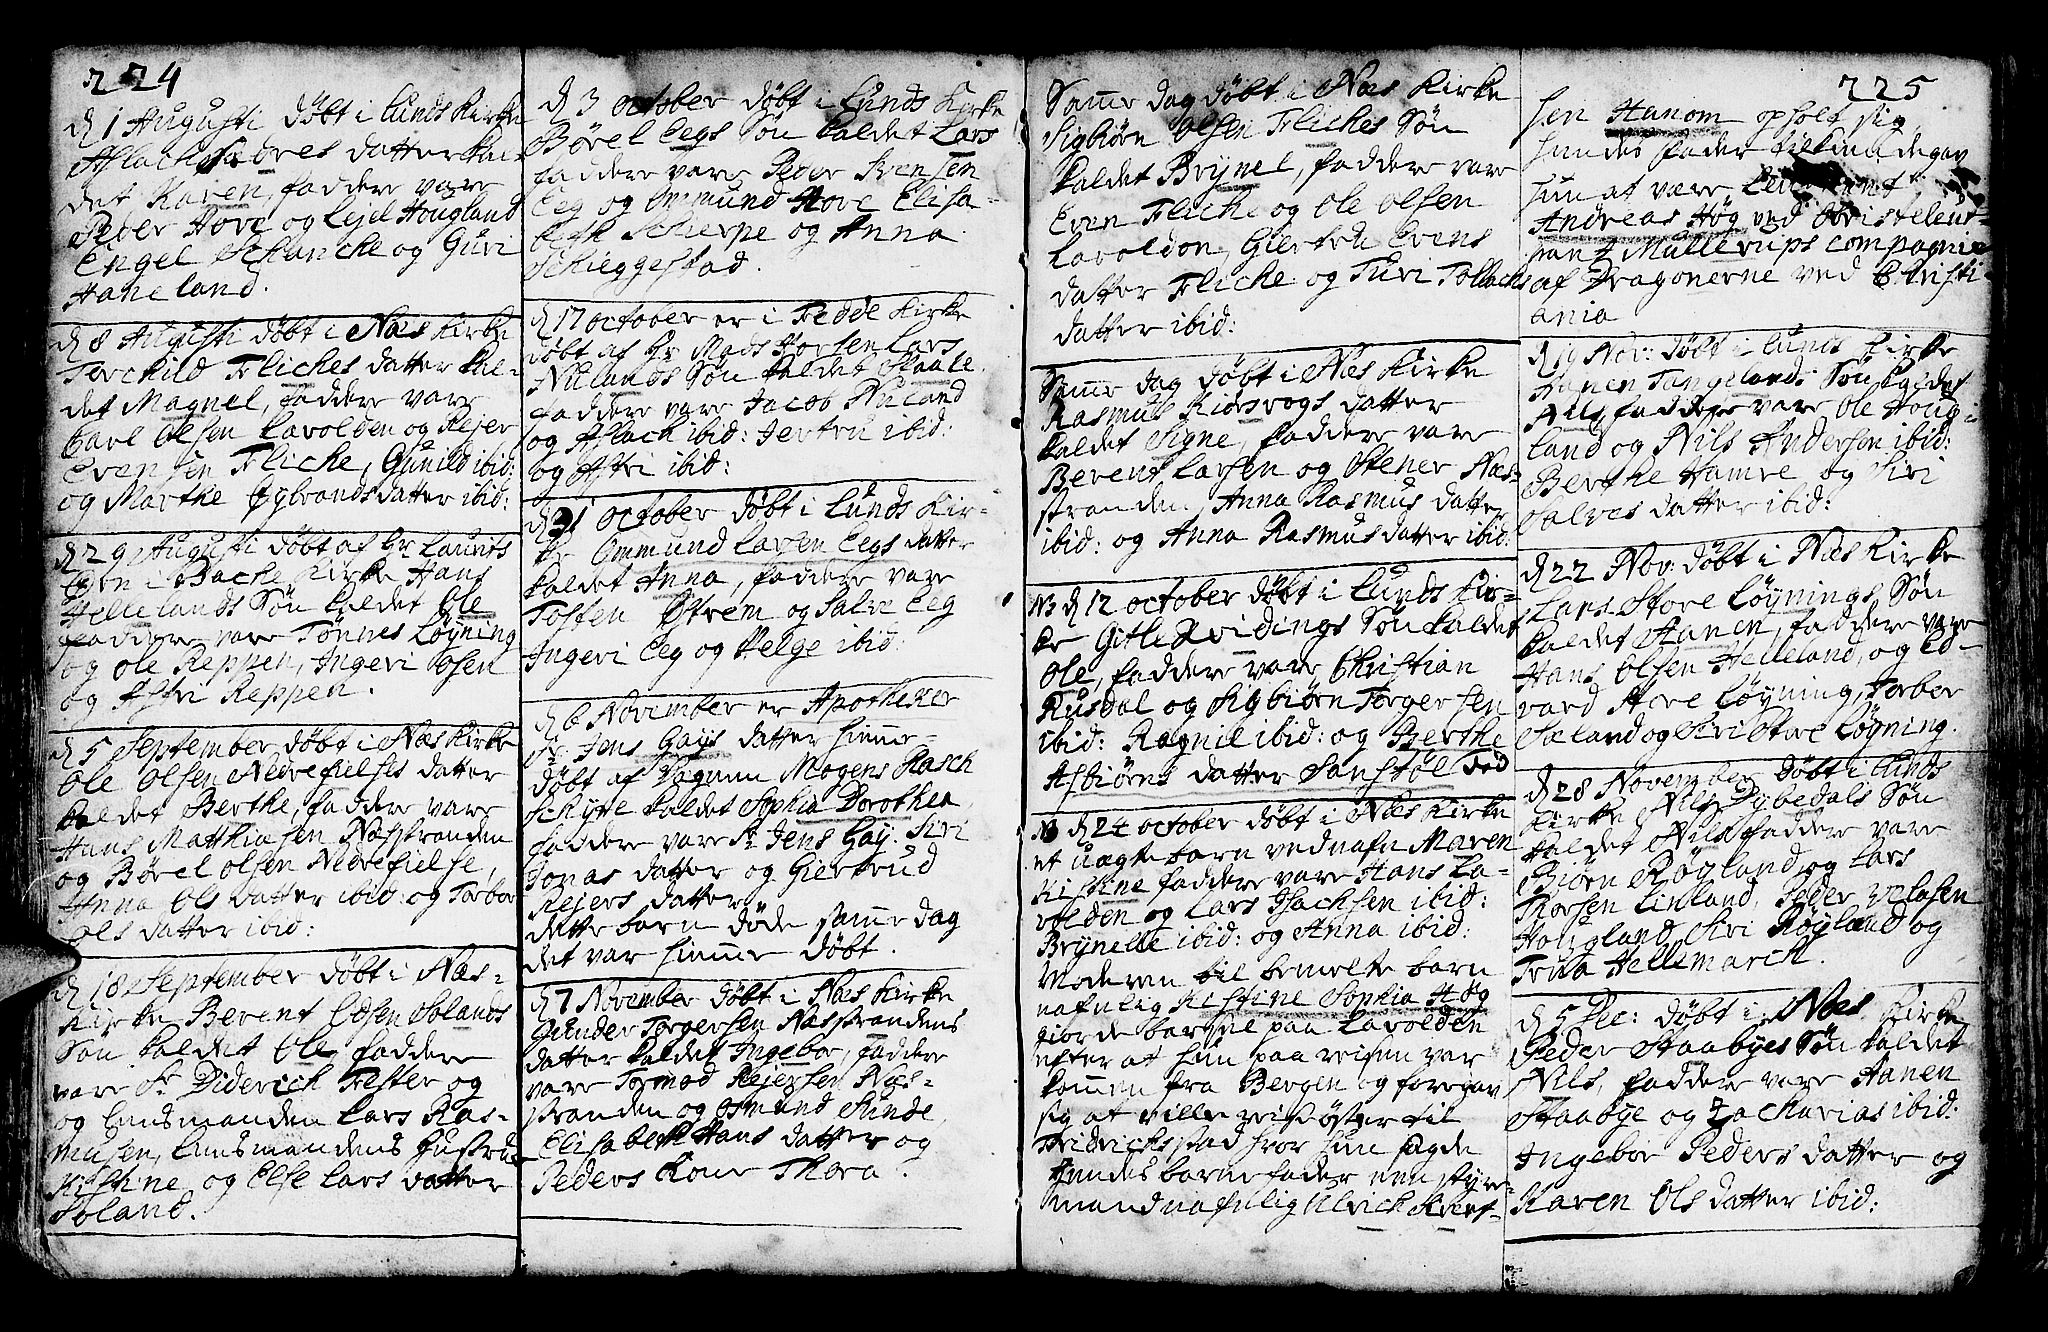 224
d 1 Augusti døbt i Lunds Kirke
Aslach datter kal-
det Karen, faddere vare
Peder Hove og Ejel Hougland
Engel Schanche og Guri
Haneland.
d 8 Augusti døbt i Næs Kirke
Torchild Fliches datter kal-
det Magnel, faddere vare
Carl Olsen Lavolden og Rejer
Evensen Fliche, Gunild ibid:
og Marthe Gybrandsdatter ibid:
d 29 Augusti døbt af Hr Laurits
i Bache Kirke Hans
Hellelands Søn kaldet Ole
faddere vare Tønnes Løyning
og Ole Reppen, Ingeri
og Astri Reppen.
d 5 September døbt i Næs Kirke
Ole Olsen Nedrefielses datter
kaldet Berthe, faddere vare
Hans Matthiasen Næsstranden
og Børel Olsen Nedrefielse,
Anna Ols datter ibid: og Torbor
Ols datter ibid:
d 18 September døbt i Næs-
Kirke Berent Edsen Solands
Søn kaldet Ole, faddere
vare Sr Diderich Fester og
og Lensmanden Lars Ras-
musen, Lensmandens Hustrue
Kistine og Else Lars datter
Soland.
d 3 october døbt i Lunds Kirke
Børel Eegs Søn kaldet Lars
faddere vare Peder Svensen
Eeg og Ommund Hove Elisa-
beth Scherpe og Anna
Schieggestad.
d 17 october er i Fedde Kirke
døbt af Hr Mads Lars
Nulands Søn kaldet Staale.
faddere vare Jacob Nuland
og Aslach ibid: Jertru ibid:
og Astri ibid:
d 31 october døbt i Lunds Kir-
ke Ommund Larsen Eegs datter
kaldet Anna, faddere vare
Tosten Østrem og Salve Eeg
Ingeri Eeg og Helge ibid:
d 6 November er Apotheker
Sr Jens Gays datter hiemme-
døbt af Dagnum Mogens Rasch
kaldet Sophia Dorothea
faddere vare Sr Jens Gay: Siri
Jonas datter og Giertrud
Rejers datter
dette barn døde samme dag
det var hiemme døbt.
d 7 November døbt i Næs Kirke
Gunder Torgersen Næsstrandens
datter kaldet Ingebor, faddere
vare Tormod Rejersen Næs-
stranden og Osmund Sunde,
Elisabeth Hans datter og
Peders Kone Thora.
225
Samme dag døbt i Næs Kirke
Sigbiørn Olsen Fliches Søn
kaldet Brynel, faddere vare
Even Fliche og Ole Olsen
Lavolden, Giertru Evens
datter Fliche og Turi Tollachs
datter ibid:
Samme dag døbt i Næs Kirke
Rasmus Kidsvogs datter
kaldet Signe, faddere vare
Berent Larsen og Stener Næs-
stranden, Anna Rasmus datter
ibid: og Anna Rasmusdatter ibid:
N3 d 12 october døbt i Lunds Kir-
ke Gitle Qvidings Søn kaldet
Ole, faddere vare Christian
Rusdal og Sigbiørn Torgersen
ibid: Ragnil ibid: og Berthe
Asbiørns datter Sanstøl
d 24 october døbt i Næs Kirke
et uægte barn ved nafn Maren
Kistine faddere vare Hans La-
volden og Lars Isachsen ibid:
Brynelle ibid: og Anna ibid:
Moderen til bemelte barn
nafnlig Kistine Sophia Høg
giorde barsel paa Lavolden
efter at hun paa reisen var
kommen fra Bergen og foregav
sig at ville reise øster til
Fridrichsstad hvor hun sagde
hendes barnefader een styre-
mand nafnlig Ulrich
sen Hanom opholt sig
hendes fader tilkiendegav
hun at være Leutenant
Andreas Høg ved Obristelent-
nant Mullerups compagnie
af Dragonerne ved Christi-
ania
d 19 Nov: døbt i Lunds Kirke
Hanen Tangelands Søn kaldet
faddere vare Ole Houg-
land og Nils Andersen ibid:
Berthe Hamre og Siri
Salves datter ibid:
d 22 Nov: døbt i Næs Kirke
Lars Store Løynings Søn
kaldet Hanen, faddere vare
Hans Olsen Helleland, og Ed-
vard Store Løyning, Torbor
Sæland og Siri Store Løyning.
d 28 November døbt i Lunds
Kirke Nils Dybedals Søn
kaldet Nils faddere vare
Biørn Røyland og Lars
Thorsen Linland, Peder
Hougland, Siri Røyland og
Trua Hellemarch.
d 5 Dec: døbt i Næs Kirke
Peder Staabyes Søn kaldet
Nils, faddere vare Hanen
Staabye og Zacharias ibid:
Ingebor Peders datter og
Karen Ols datter ibid: